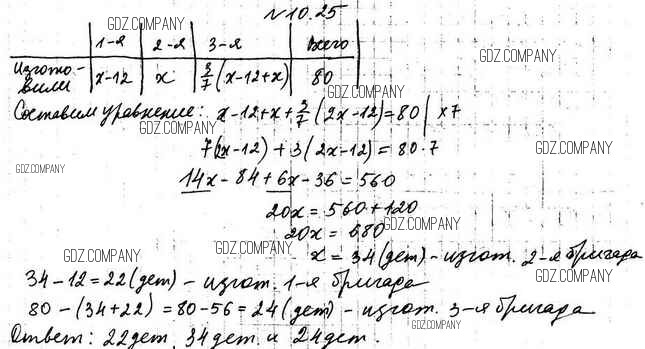 №10.25
GDZ.COMPANY
1-я 2-я 3-я всего
GDZ.COMPANY
Изгото- x-12 x 3/7(x-12+x) 80
вили
GDZ.COMPANY GDZ.COMPANY
Составим уравнение: x-12+x+3/7(2x-12)=80 | ×7
GDZ.COMPANY
7(2x-12)+3(2x-12)=80·7
GDZ.COMPANY GDZ.COMPANY
GDZ.COMPANY
14x-84+6x-36=560
20x=560+120
GDZ.COMPANY
20x=680
GDZ.COMPANY GDZ.COMPANY
x=34(дет)-изгот. 2-я бригада
GDZ.COMPANY
34-12=22(дет)-изгот. 1-я бригада
GDZ.COMPANY
80-(34+22)=80-56=24(дет)-изгот. 3-я бригада
GDZ.COMPANY
Ответ: 22дет, 34дет и 24дет.